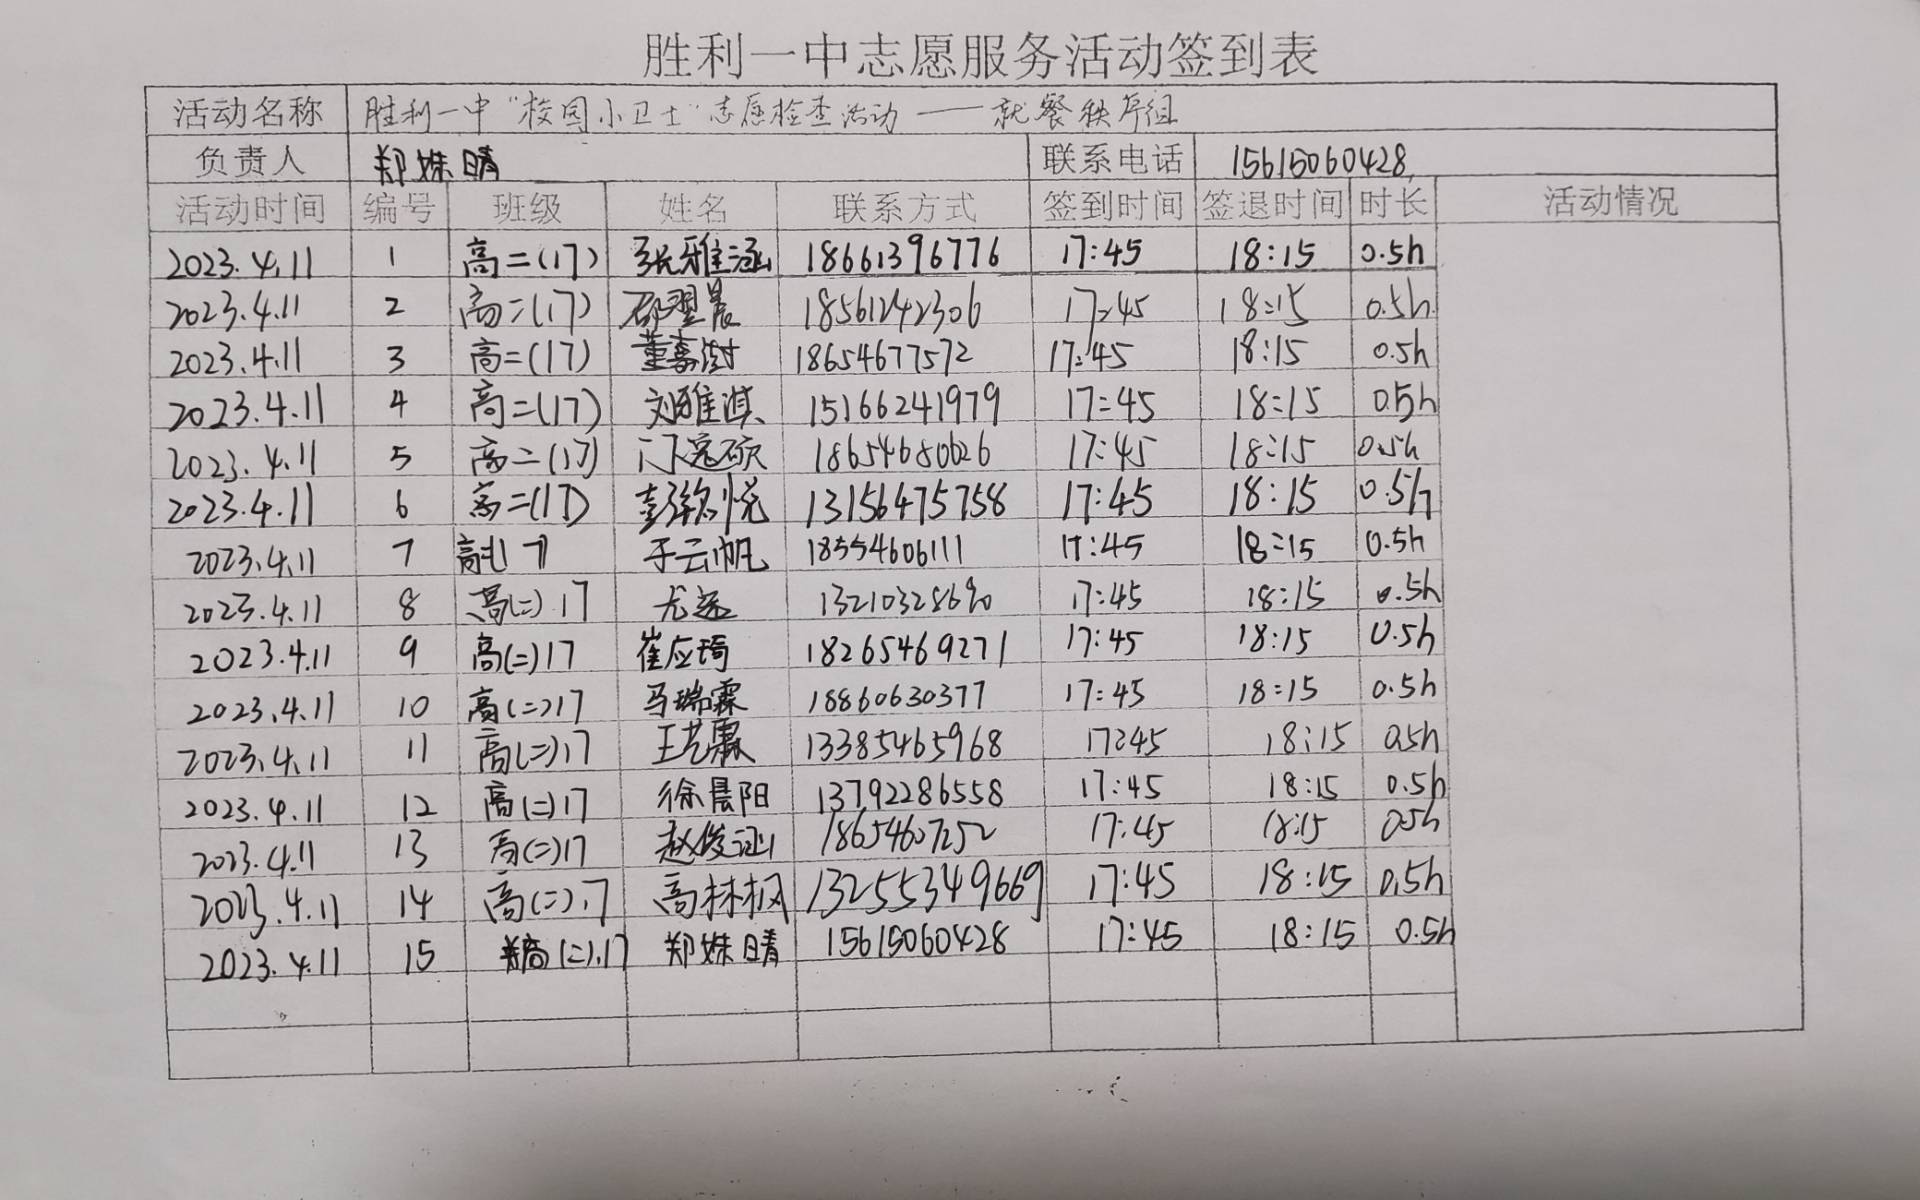 胜利一中志愿服务活动签到表
活动名称 胜利一中“校园小卫士”志愿检查活动——就餐秩序组
负责人 郑姝晴 联系电话 15615060428
活动时间 编号 班级 姓名 联系方式 签到时间 签退时间 时长 活动情况
2023.4.11 1 高二(17) 张雅涵 18661396776 17:45 18:15 0.5h
2023.4.11 2 高二(17) 邵翌晨 18561242306 17:45 18:15 0.5h
2023.4.11 3 高二(17) 董嘉澍 18654677572 17:45 18:15 0.5h
2023.4.11 4 高二(17) 刘雅淇 15166241979 17:45 18:15 0.5h
2023.4.11 5 高二(17) 门宽硕 18654680626 17:45 18:15 0.5h
2023.4.11 6 高二(17) 彭歆悦 13156475758 17:45 18:15 0.5h
2023.4.11 7 高二17 于云帆 18554606111 17:45 18:15 0.5h
2023.4.11 8 高(二)17 尤远 13210328690 17:45 18:15 0.5h
2023.4.11 9 高(二)17 崔应琦 18265469271 17:45 18:15 0.5h
2023.4.11 10 高(二)17 马瑞霖 18860630377 17:45 18:15 0.5h
2023.4.11 11 高(二)17 王艺霖 13385465968 17:45 18:15 0.5h
2023.4.11 12 高(二)17 徐晨阳 13792286558 17:45 18:15 0.5h
2023.4.11 13 高(二)17 赵俊涵 18654607252 17:45 18:15 0.5h
2023.4.11 14 高(二).17 高林枫 13255349669 17:45 18:15 0.5h
2023.4.11 15 高(二).17 郑姝晴 15615060428 17:45 18:15 0.5h